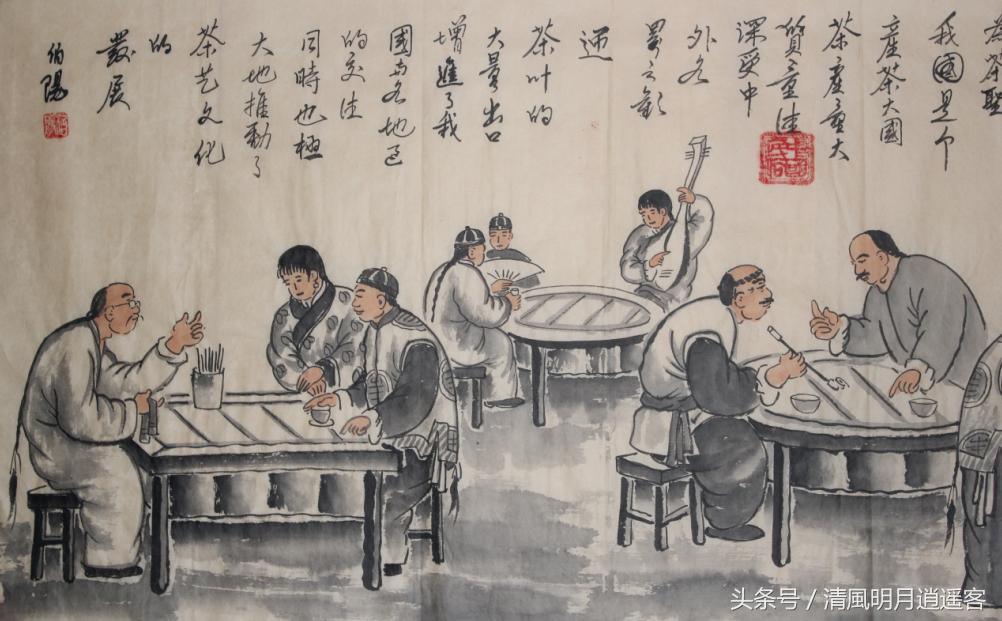 茶聖
我國是个
產茶大國
茶產量大
質量佳
深受中
外各
界之歡
迎
茶叶的
大量出口
增進了我
國与各地区
的交往
同時也極
大地推動了
茶艺文化
的
發展
伯陽
头条号 / 清風明月逍遥客